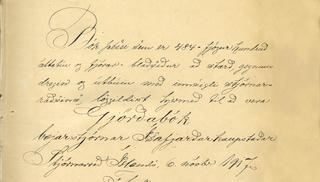 Bók þessi sem er 484 - fjögur hundruð
áttatíu og fjórar - blaðsíður að stærð, gegnum-
dregin og útbúin með innsigli stjórnar-
ráðsins, löggildist hjermeð til að vera
Gjörðabók
bæjarstjórnar Ísafjarðarkaupstaðar
Stjórnarráð Íslands, 6. nóvbr. 1917.